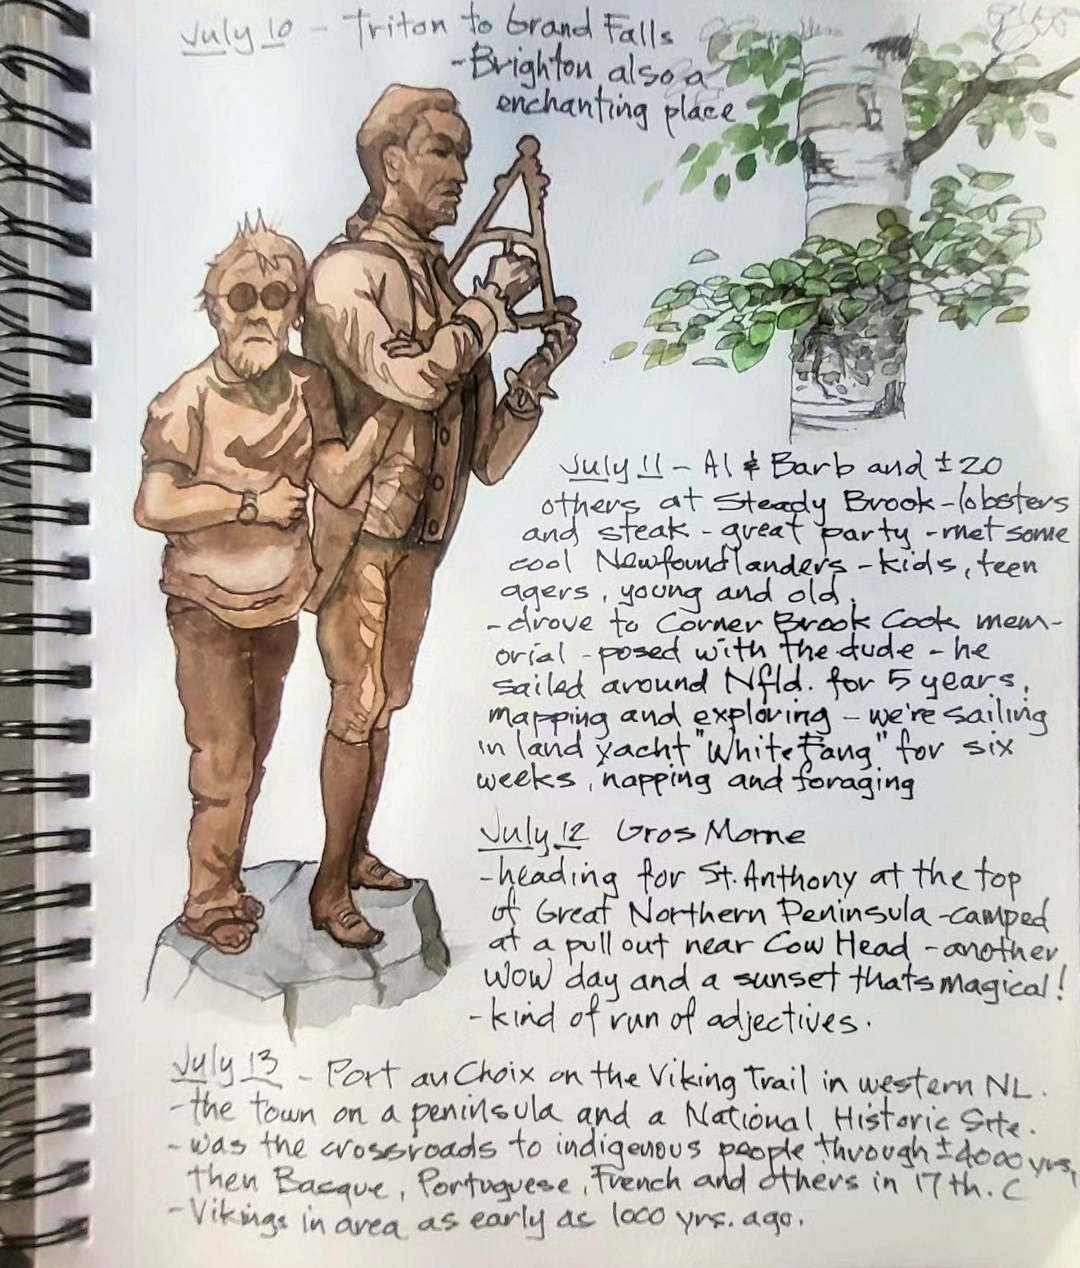 July 10 - Triton to Grand Falls
- Brighton also a
enchanting place
July 11 - Al & Barb and ± 20
others at Steady Brook - lobsters
and steak - great party - met some
cool Newfoundlanders - kids, teen
agers, young and old.
- drove to Corner Brook Cook mem-
orial - posed with the dude - he
sailed around Nfld. for 5 years,
mapping and exploring - we're sailing
in land yacht "White Fang" for six
weeks, napping and foraging
July 12 Gros Morne
- heading for St. Anthony at the top
of Great Northern Peninsula - camped
at a pull out near Cow Head - another
wow day and a sunset thats magical!
- kind of run of adjectives.
July 13 - Port au Choix on the Viking Trail in western NL.
- the town on a peninsula and a National Historic Site.
- was the crossroads to indigenous people through ± 4000 yrs,
then Basque, Portuguese, French and others in 17th. C
- Vikings in area as early as 1000 yrs. ago.